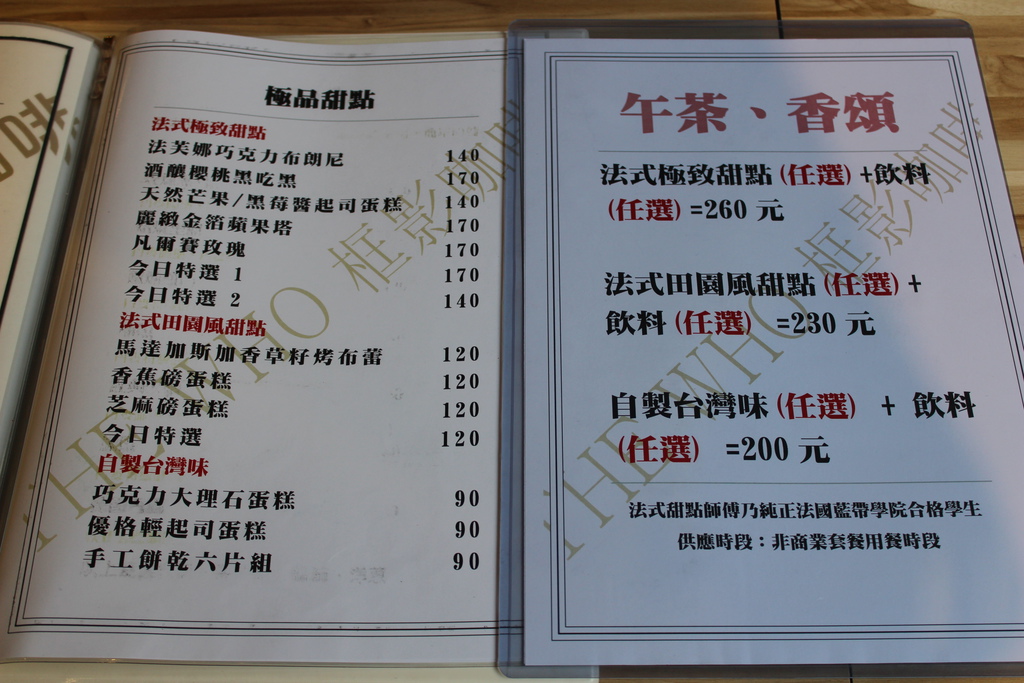 極品甜點
法式極致甜點
法芙娜巧克力布朗尼 140
酒釀櫻桃黑吃黑 170
天然芒果/黑莓醬起司蛋糕 140
麗緻金箔蘋果塔 170
凡爾賽玫瑰 170
今日特選 1 170
今日特選 2 140
法式田園風甜點
馬達加斯加香草籽烤布蕾 120
香蕉磅蛋糕 120
芝麻磅蛋糕 120
今日特選 120
自製台灣味
巧克力大理石蛋糕 90
優格輕起司蛋糕 90
手工餅乾六片組 90
THEWHO 框影咖啡
午茶、香頌
法式極致甜點(任選)+飲料
(任選)=260 元
法式田園風甜點(任選)+
飲料(任選) =230 元
自製台灣味(任選) + 飲料
(任選) =200 元
法式甜點師傅乃純正法國藍帶學院合格學生
供應時段：非商業套餐用餐時段
THEWHO 框影咖啡